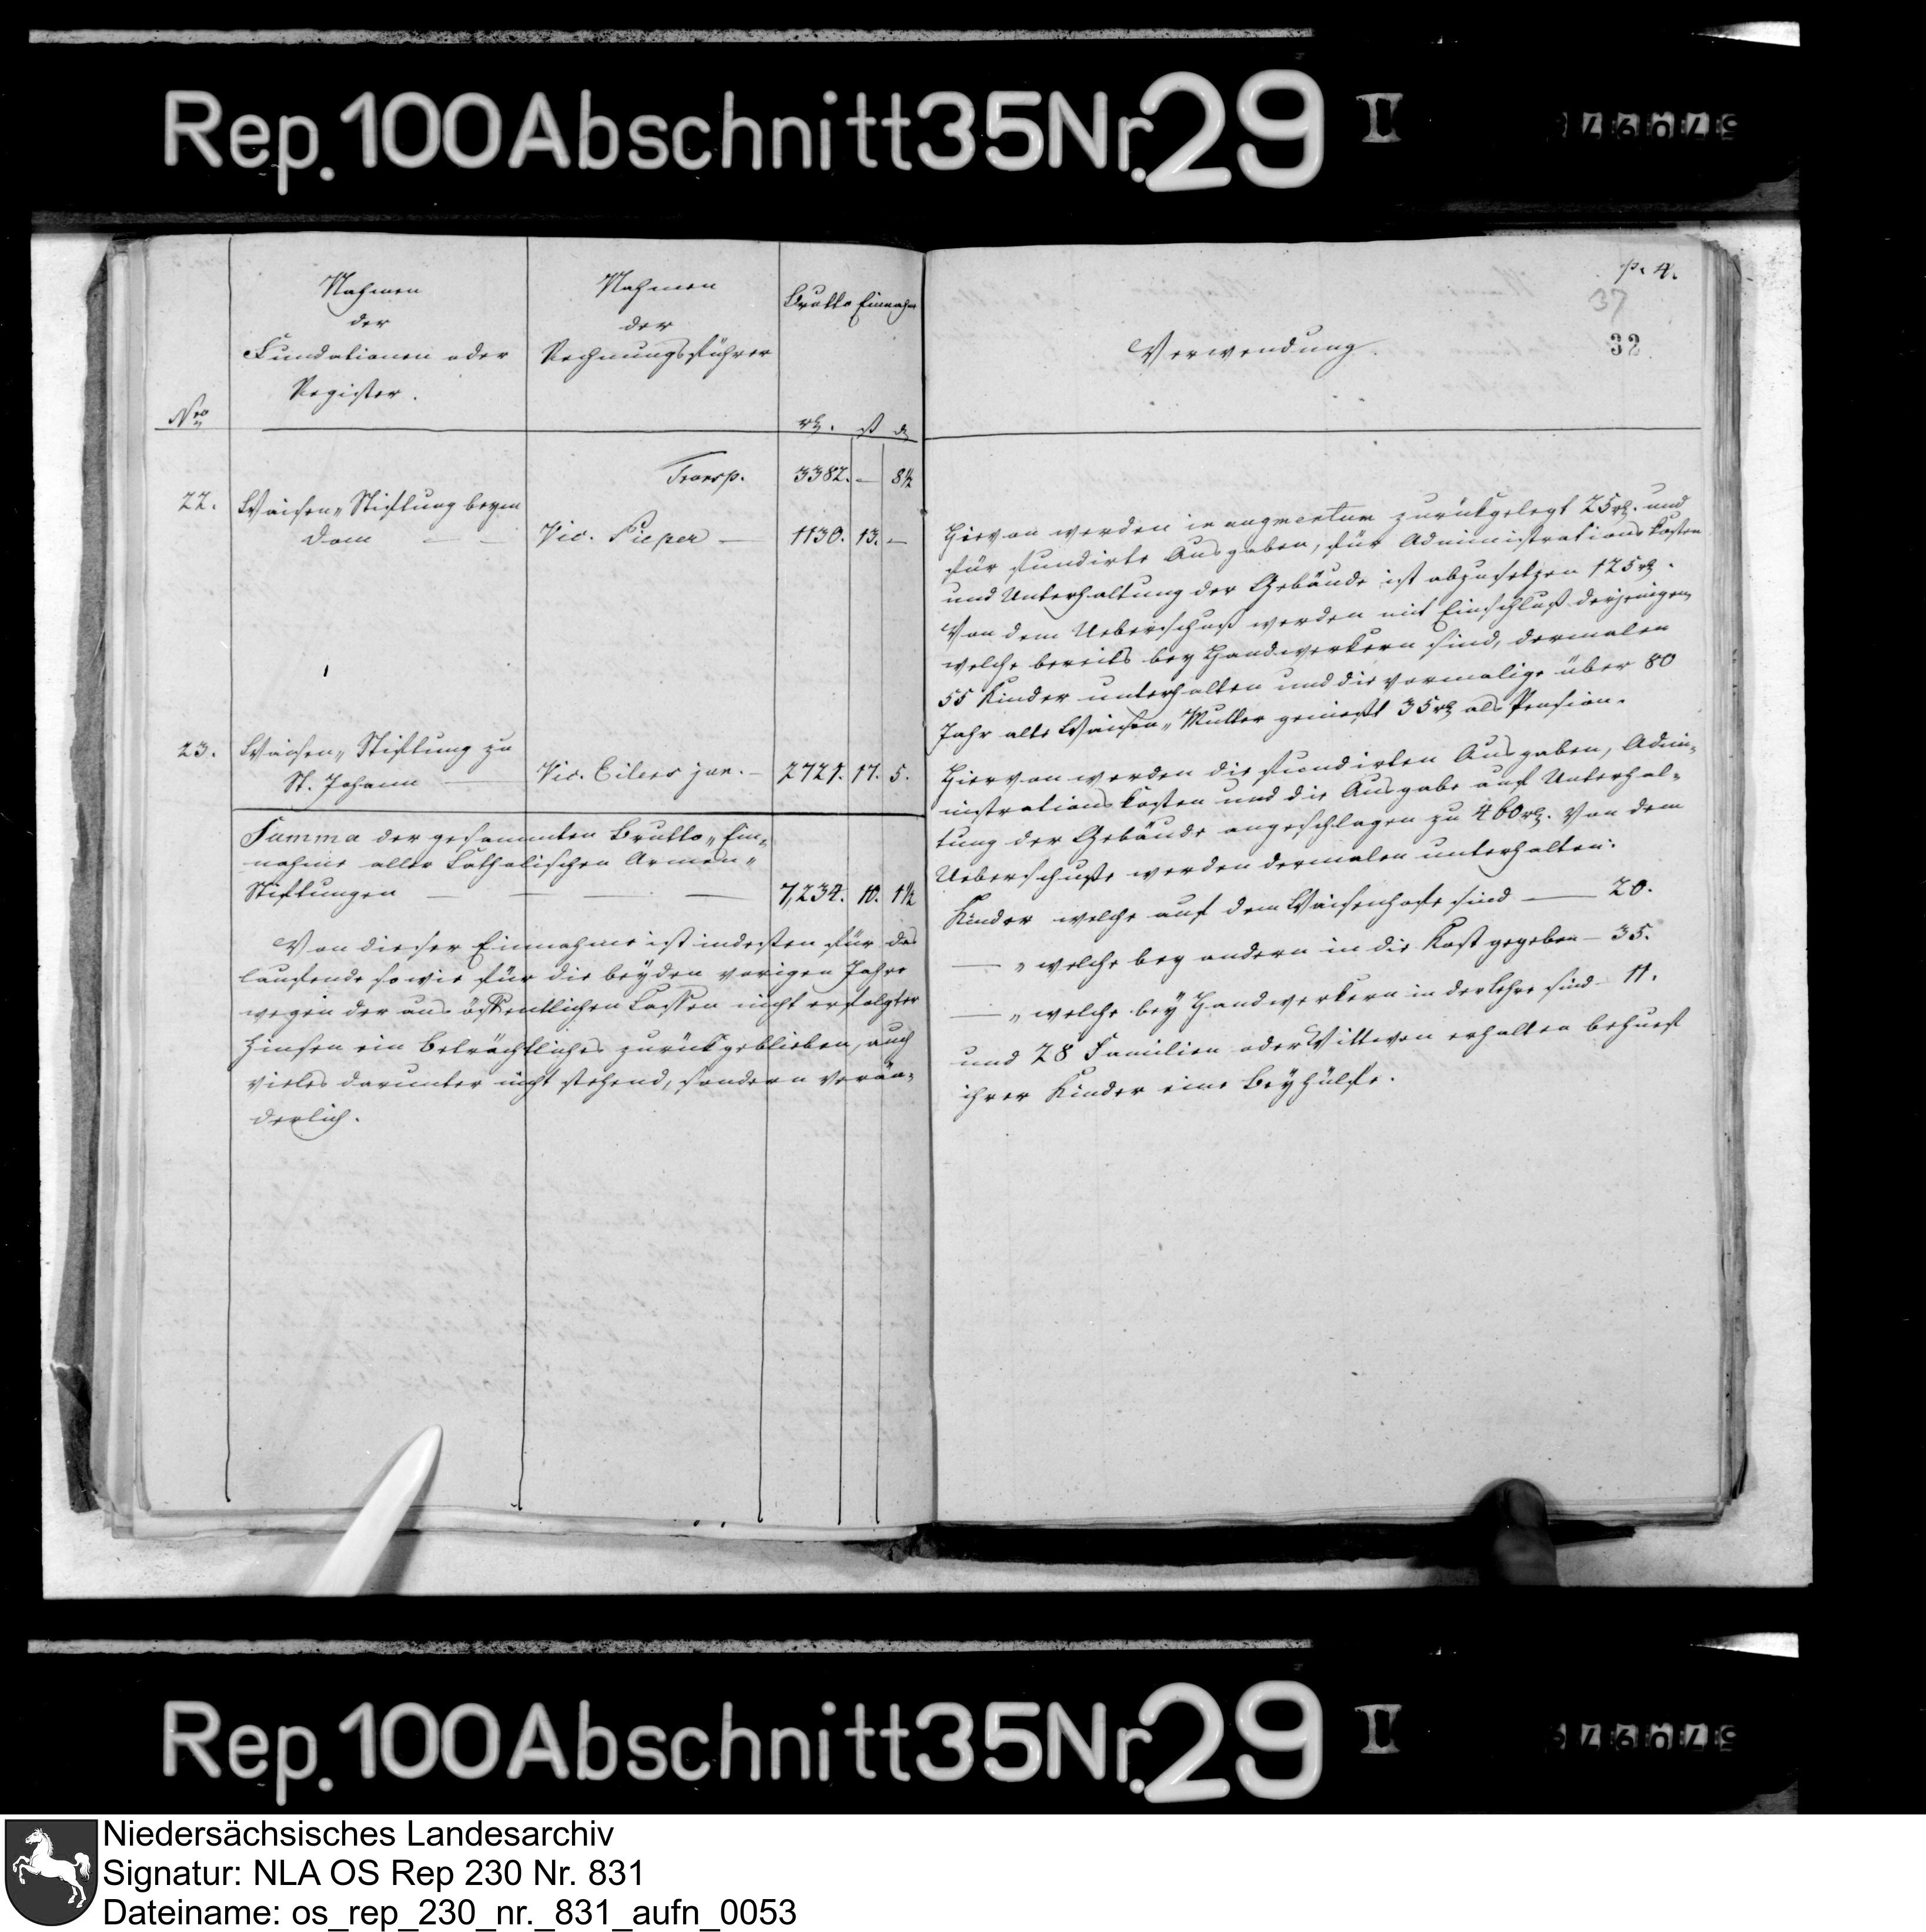 Rep. 100 Abschnitt 35 Nr. 29 II
Nahmen
der
Fundationen oder
Register.
Nro
Nahmen
der
Rechnungsführer
Brutto Einnahm
rt. ß d
Transp. 3382. – 8½
22. Waisen„Stiftung beym
Dom — — Vic. Pieper — 1130. 13. –
23. Waisen„Stiftung zu
St. Johann — Vic. Eilers jun. – 2721. 17. 5.
Summa der gesammten Brutto„Ein„
nahme aller Catholischen Armen„
Stiftungen — — — 7,234. 10. 1½
Von dieser Einnahme ist indessen für das
laufende so wie für die beyden vorigen Jahre
wegen der aus öffentlichen Cassen nicht erfolgter
Zinsen ein beträchtliches zurückgeblieben, auch
vieles darunter nicht stehend, sondern verän„
derlich.
p. 4.
37
32
Verwendung.
Hievon werden in augmentum zurückgelegt 25 rt. und
für fundirte Ausgaben, für Administrationskosten
und Unterhaltung der Gebäude ist abzusetzen 125 rt.
Von dem Ueberschuß werden mit Einschluß derjenigen
welche bereits bey Handwerkern sind, dermalen
55 Kinder unterhalten und die vormalige über 80
Jahr alte Waisen„Mutter genießt 35 rt als Pension.
Hiervon werden die fundirten Ausgaben, Admi„
nistrationskosten und die Ausgabe auf Unterhal„
tung der Gebäude angeschlagen zu 460 rt. Von dem
Ueberschuße werden dermalen unterhalten:
Kinder welche auf dem Waisenhofe sind — 20.
— „ welche bey andern in die Kost gegeben – 35.
— „ welche bey Handwerkern in der Lehre sind – 11.
und 28 Familien oder Wittwen erhalten behuef
ihrer Kinder eine Beyhülfe.
Rep. 100 Abschnitt 35 Nr. 29 II
Niedersächsisches Landesarchiv
Signatur: NLA OS Rep 230 Nr. 831
Dateiname: os_rep_230_nr._831_aufn_0053